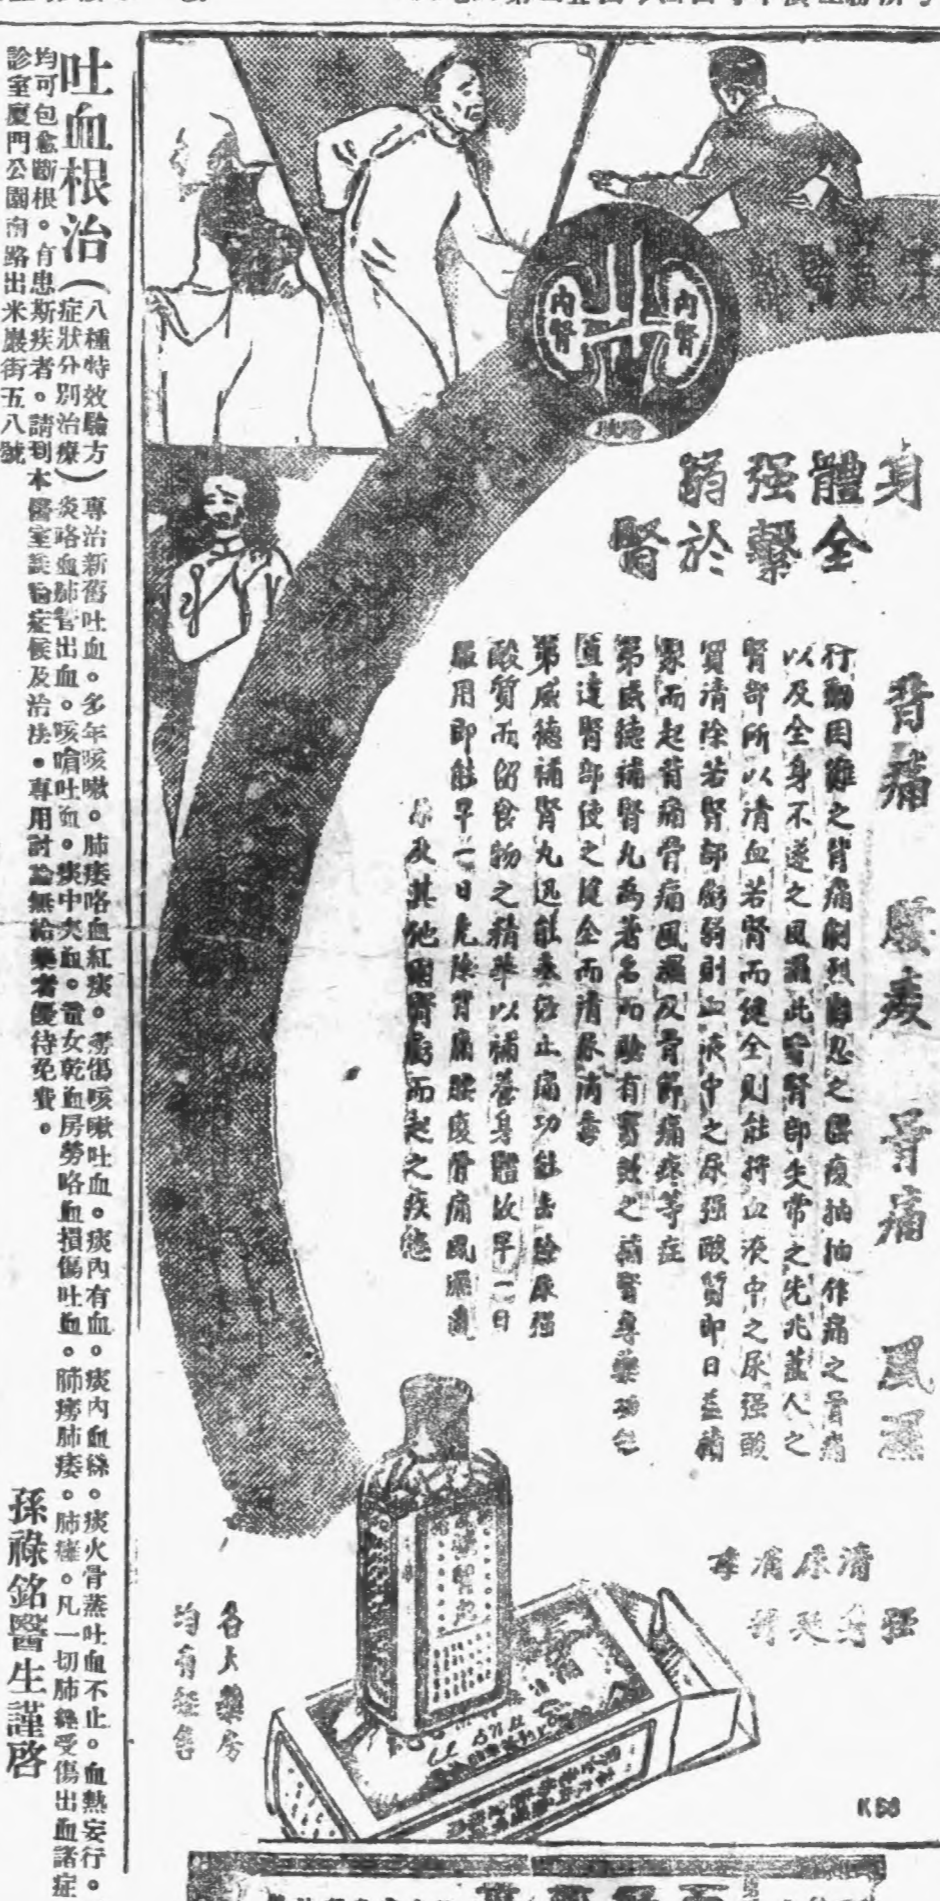 身體强弱
全繫於腎
內腎
內腎
背痛 腰痠 骨痛 風濕
行動困難之背痛劇烈難忍之腰痠抽抽作痛之骨痛
以及全身不遂之風濕此皆腎部失常之先兆蓋人之
腎部所以清血若腎而健全則能將血液中之尿强酸
質清除若腎部虧弱則血液中之尿强酸質即日益積
聚而起背痛骨痛風濕及骨節痛疼等症
第威德補腎丸為著名而驗有實效之補腎專藥功能
直達腎部使之健全而清尿消毒
第威德補腎丸迅能奏效止痛功能去除尿强
酸質而留食物之精華以補養身體故早一日
服用即能早一日免除背痛腰痠骨痛風濕
及其他因腎虧而起之疾患
清尿消毒
强身延壽
各大藥房
均有經售
K56
吐血根治
(八種特效驗方
症狀分別治療)
專治新舊吐血。多年咳嗽。肺痿咯血紅痰。癆傷咳嗽吐血。痰內有血。痰內血絲。痰火骨蒸吐血不止。血熱妄行。
炎咯血肺管出血。咳嗆吐血。痰中夾血。室女乾血房勞咯血損傷吐血。肺癆肺痿。肺癰。凡一切肺經受傷出血諸症
均可包愈斷根。有患斯疾者。請到本醫室談論症候及治法。專用討論無給藥者優待免費。
診室廈門公園南路出米巖街五八號
孫祿銘醫生謹啓